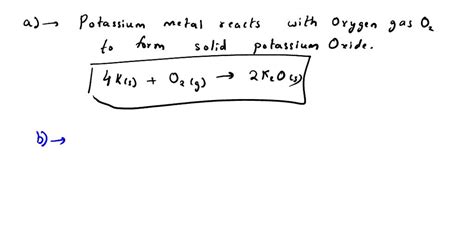 a) → Potassium metal reacts with Oxygen gas O₂
to form solid potassium Oxide.
4K(s) + O₂(g) → 2K₂O(s)
b) →